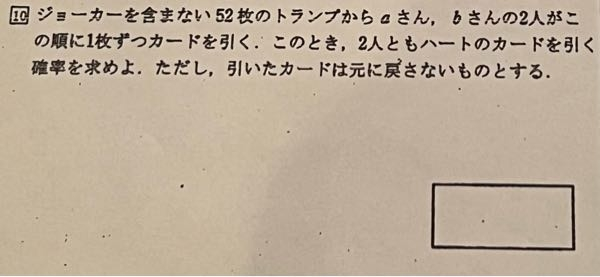 10 ジョーカーを含まない52枚のトランプからaさん，bさんの2人がこ
の順に1枚ずつカードを引く．このとき，2人ともハートのカードを引く
確率を求めよ．ただし，引いたカードは元に戻さないものとする．